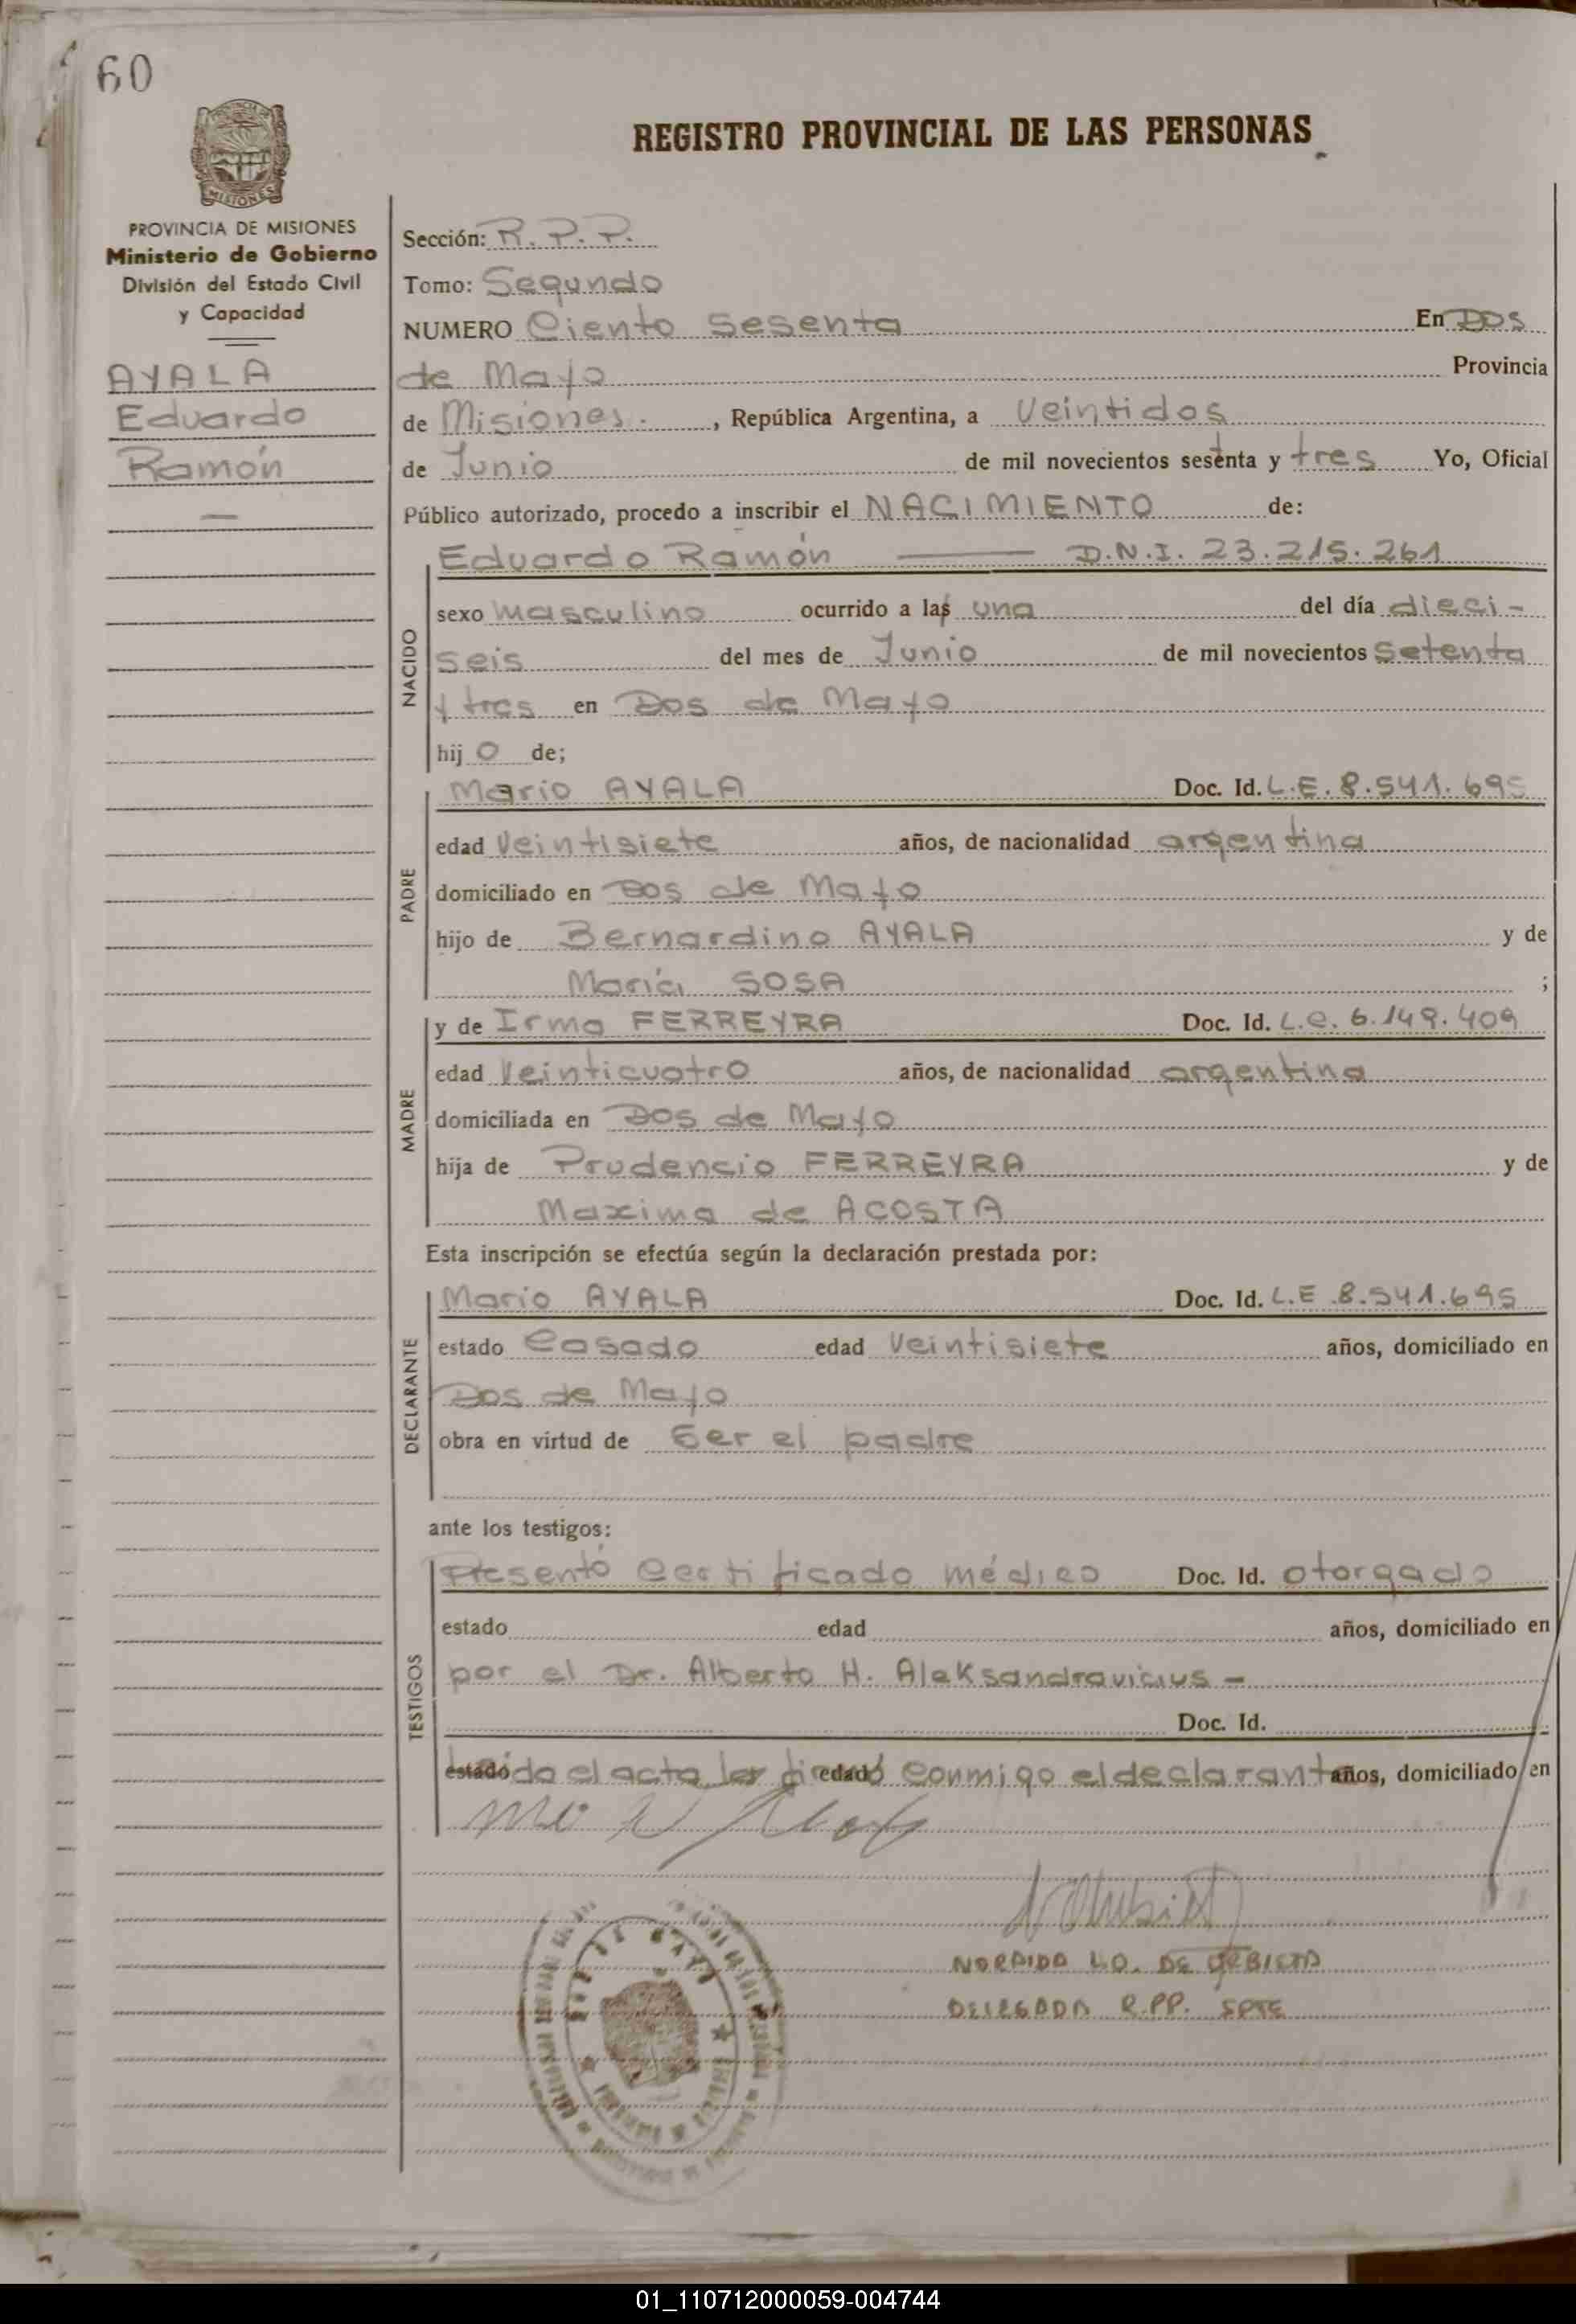 60
PROVINCIA DE MISIONES
Ministerio de Gobierno
División del Estado Civil
y Capacidad
AYALA
Eduardo
Ramón
—
REGISTRO PROVINCIAL DE LAS PERSONAS
Sección: R. P. P.
Tomo: Segundo
NUMERO Ciento Sesenta En Dos
de Mayo Provincia
de Misiones. , República Argentina, a Veintidos
de Junio de mil novecientos sesenta y tres Yo, Oficial
Público autorizado, procedo a inscribir el NACIMIENTO de:
NACIDO
Eduardo Ramón —— D.N.I. 23.215.261
sexo masculino ocurrido a las una del día dieci-
seis del mes de Junio de mil novecientos setenta
y tres en Dos de Mayo
hij o de;
PADRE
Mario AYALA Doc. Id. L.E. 8.541.695
edad Veintisiete años, de nacionalidad argentina
domiciliado en Dos de Mayo
hijo de Bernardino AYALA y de
María SOSA ;
MADRE
y de Irma FERREYRA Doc. Id. L.C. 6.149.409
edad Veinticuatro años, de nacionalidad argentina
domiciliada en Dos de Mayo
hija de Prudencio FERREYRA y de
Maxima de ACOSTA
Esta inscripción se efectúa según la declaración prestada por:
DECLARANTE
Mario AYALA Doc. Id. L.E 8.541.695
estado Casado edad Veintisiete años, domiciliado en
Dos de Mayo
obra en virtud de Ser el padre
ante los testigos:
TESTIGOS
Presentó Certificado médico Doc. Id. otorgado
estado edad años, domiciliado en
por el Dr. Alberto H. Aleksandravicius -
Doc. Id.
estado el acta edad conmigo el declarante años, domiciliado en
DE
DELEGADA R.PP.
DOS DE MAYO
01_110712000059-004744